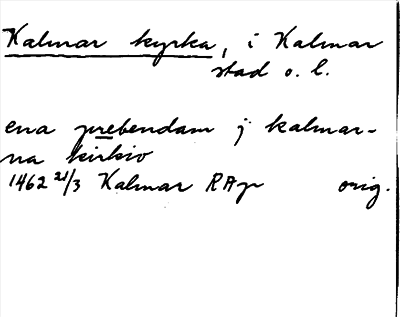 Kalmar kyrka, i Kalmar
stad o. l.
ena prebendam j kalmar-
na kirkio
1462 21/3 Kalmar RAp orig.